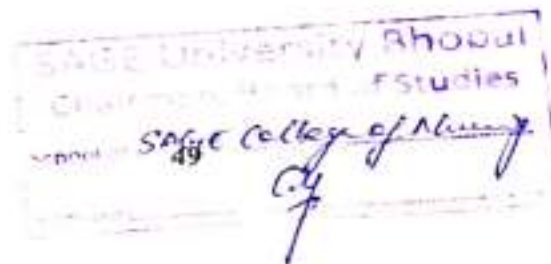 SAGE University Bhopal
Chairman, Board of Studies
School of SAGE College of Nursing
49